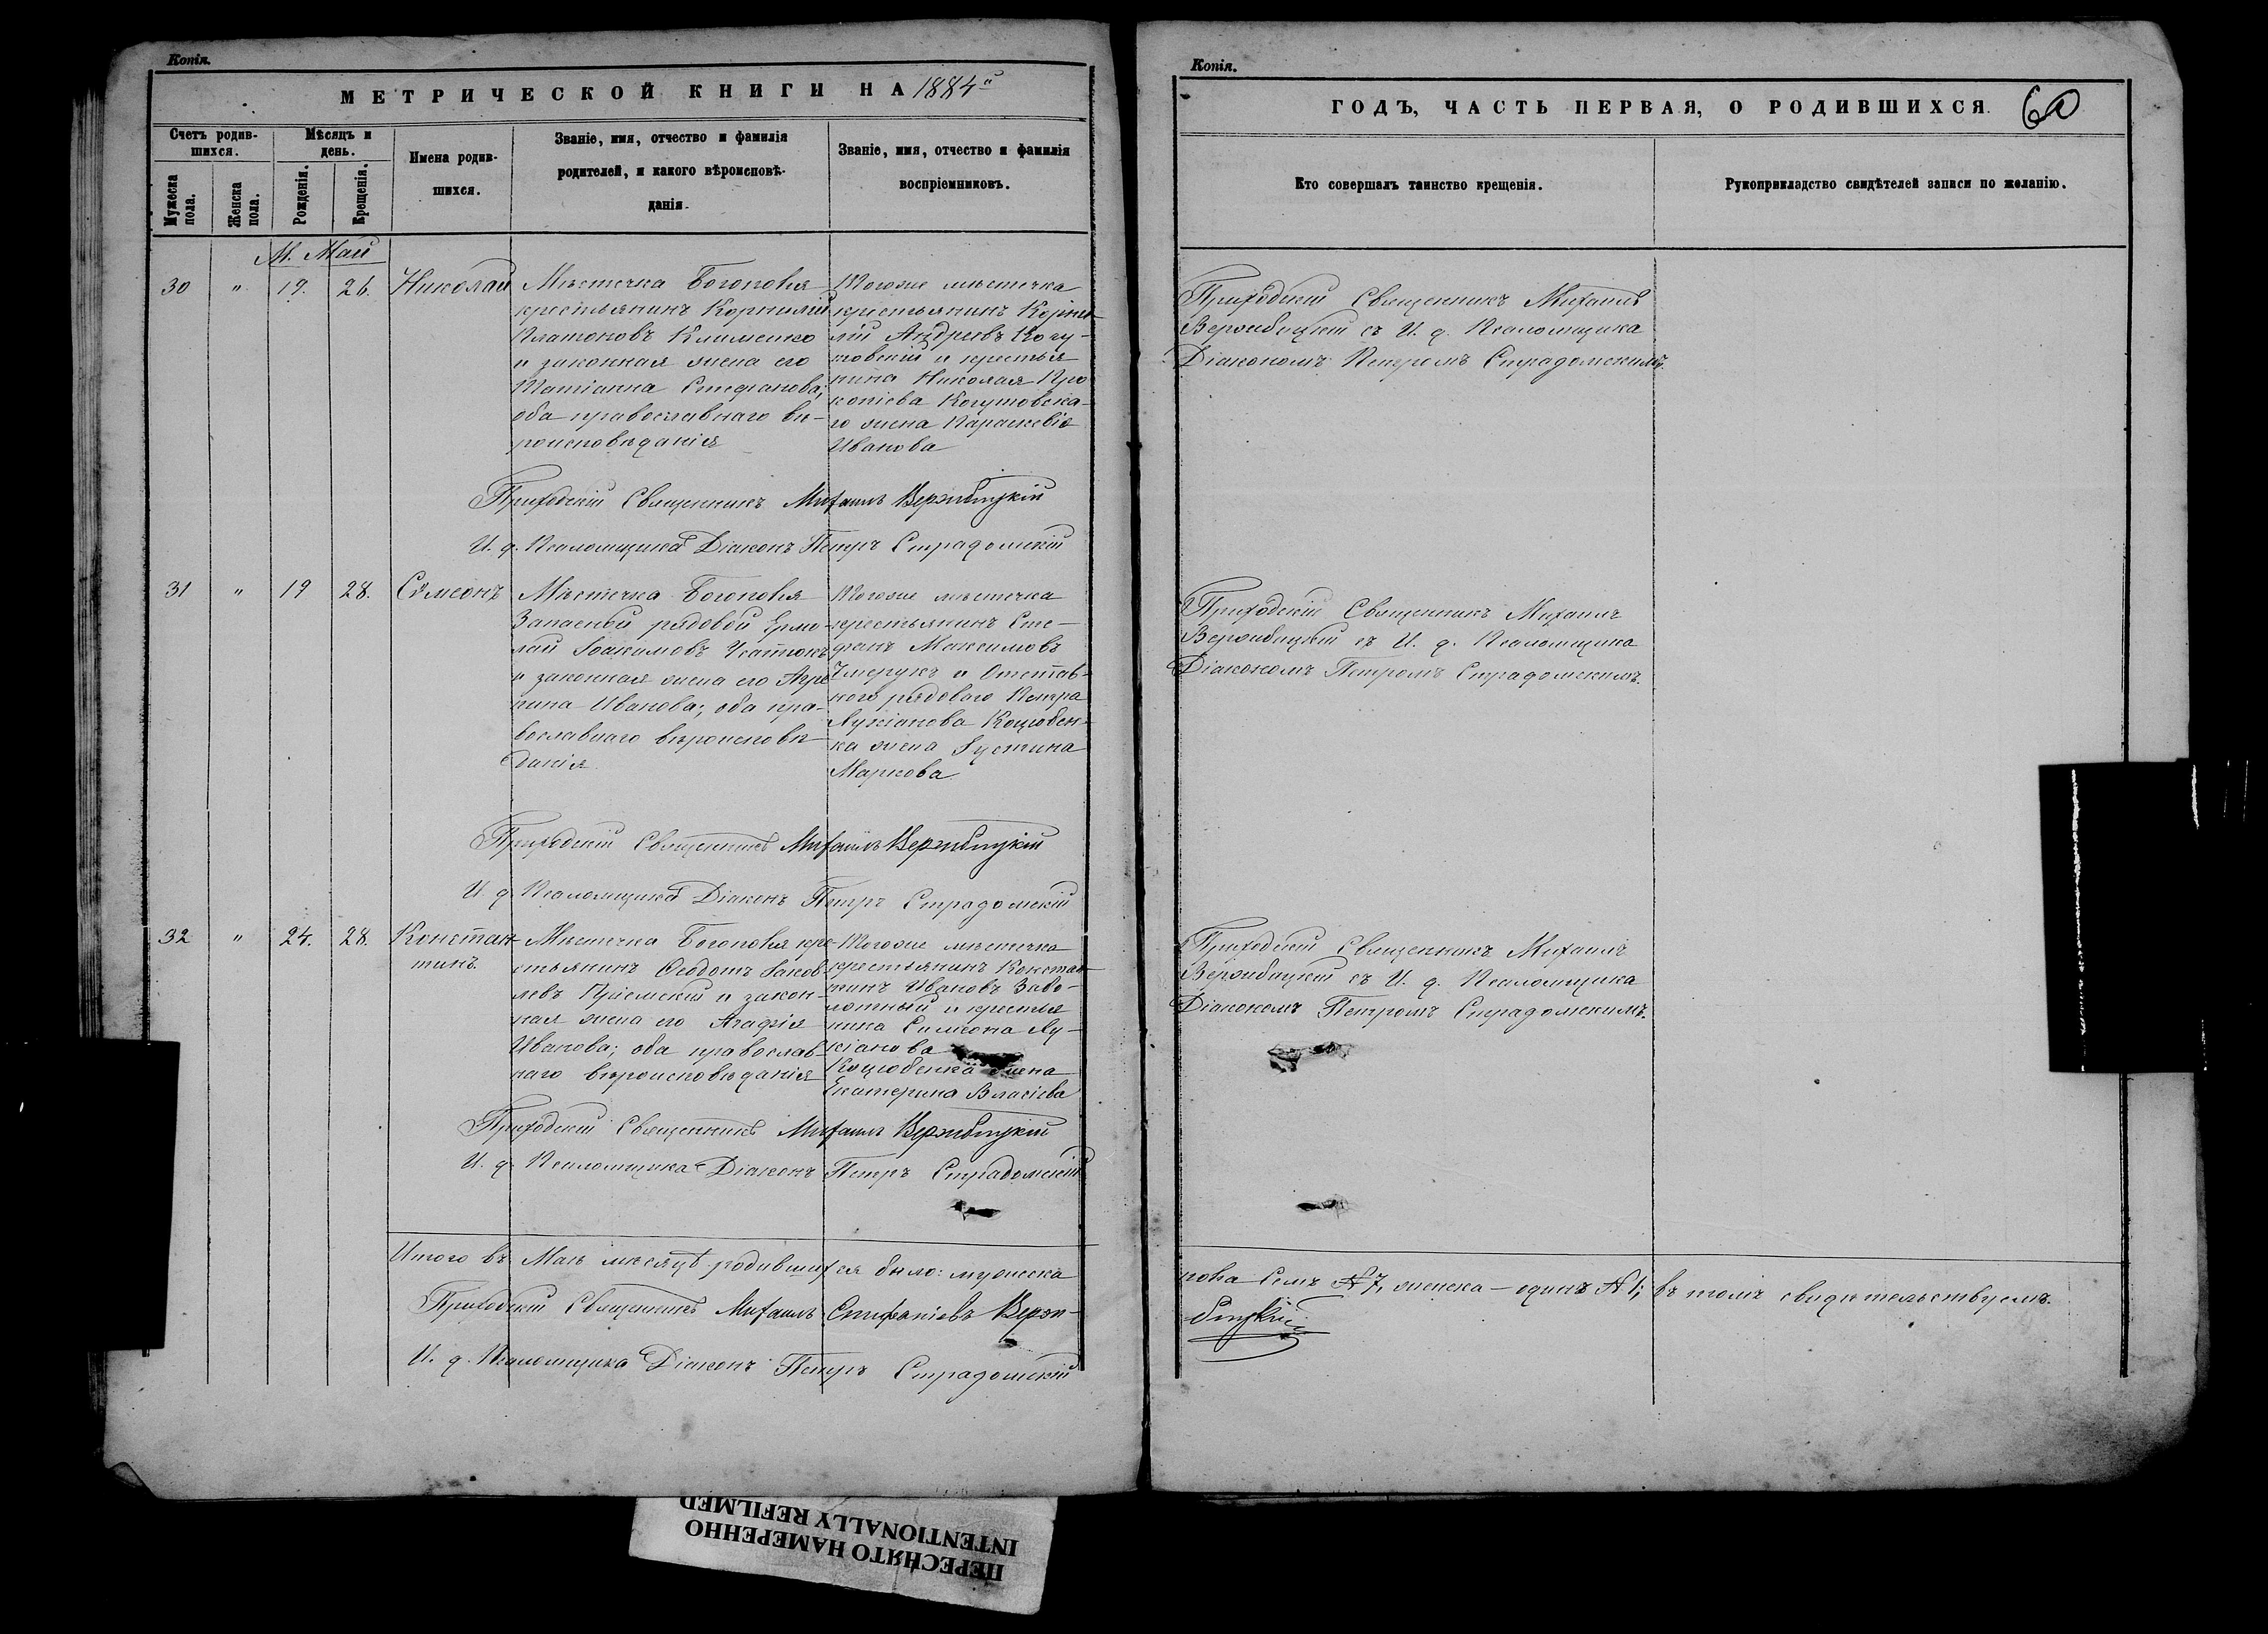 Копія.
МЕТРИЧЕСКОЙ КНИГИ НА 1884й
Счетъ родив-
шихся.
Мужеска
пола.
Женска
пола.
Мѣсяцъ и
день.
Рожденія.
Крещенія.
Имена родив-
шихся.
Званіе, имя, отчество и фамилія
родителей, и какого вѣроисповѣ-
данія.
Званіе, имя, отчество и фамилія
воспріемниковъ.
М. Май
30 " 19. 26. Николай
Мѣстечка Богополя
крестьянинъ Корнилій
Платоновъ Клименко
и законная жена его
Татіанна Стефанова;
оба православнаго вѣ-
роисповѣданія
Тогоже мѣстечка
крестьянинъ Корни-
лій Андреевъ Когу-
товскій и крестья
нина Николая Про
копіева Когутовска-
го жена Параскевія
Иванова
Приходскій Священникъ Михаилъ Вержбицкій
И. д. Псаломщика Діаконъ Петръ Страдомскій
31 " 19 28. Сѵмеонъ
Мѣстечка Богополя
Запасной рядовой Ермо-
лай Іоакимовъ
и законная жена его Агри
пина Иванова; оба пра-
вославнаго вѣроисповѣ
данія
Тогоже мѣстечка
крестьянинъ Сте-
фанъ Максимовъ
и Отстав-
ного рядоваго Петра
Лукіанова Коцюбен-
ка жена Іустина
Маркова
Приходскій Священникъ Михаилъ Вержбицкій
И. д. Псаломщика Діаконъ Петръ Страдомскій
32 " 24. 28. Констан-
тинъ.
Мѣстечка Богополя кре-
стьянинъ Ѳеодотъ Іаков-
левъ и закон-
ная жена его Агафія
Иванова; оба православ-
наго вѣроисповѣданія
Тогоже мѣстечка
крестьянинъ Констан-
тинъ Ивановъ Забо-
лотный и крестья
нина Симеона Лу-
кіанова
Коцюбенка жена
Екатерина Власіева
Приходскій Священникъ Михаилъ Вержбицкій
И. д. Псаломщика Діаконъ Петръ Страдомскій
Итого въ Маѣ мѣсяцѣ родившихся было: мужеска
Приходскій Священникъ Михаилъ Епифаніевъ Верж-
И. д. Псаломщика Діаконъ Петръ Страдомскій
Копія.
ГОДЪ, ЧАСТЬ ПЕРВАЯ, О РОДИВШИХСЯ. 60
Кто совершалъ таинство крещенія.
Рукоприкладство свидѣтелей записи по желанію.
Приходскій Священникъ Михаилъ
Вержбицкій съ И. д. Псаломщика
Діакономъ Петромъ Страдомскимъ.
Приходскій Священникъ Михаилъ
Вержбицкій съ И. д. Псаломщика
Діакономъ Петромъ Страдомскимъ.
Приходскій Священникъ Михаилъ
Вержбицкій съ И. д. Псаломщика
Діакономъ Петромъ Страдомскимъ.
пола семь № 7, женска – одинъ № 1; въ томъ свидѣтельствуемъ.
бицкій
ПЕРЕСНЯТО НАМЕРЕННО
INTENTIONALLY REFILMED